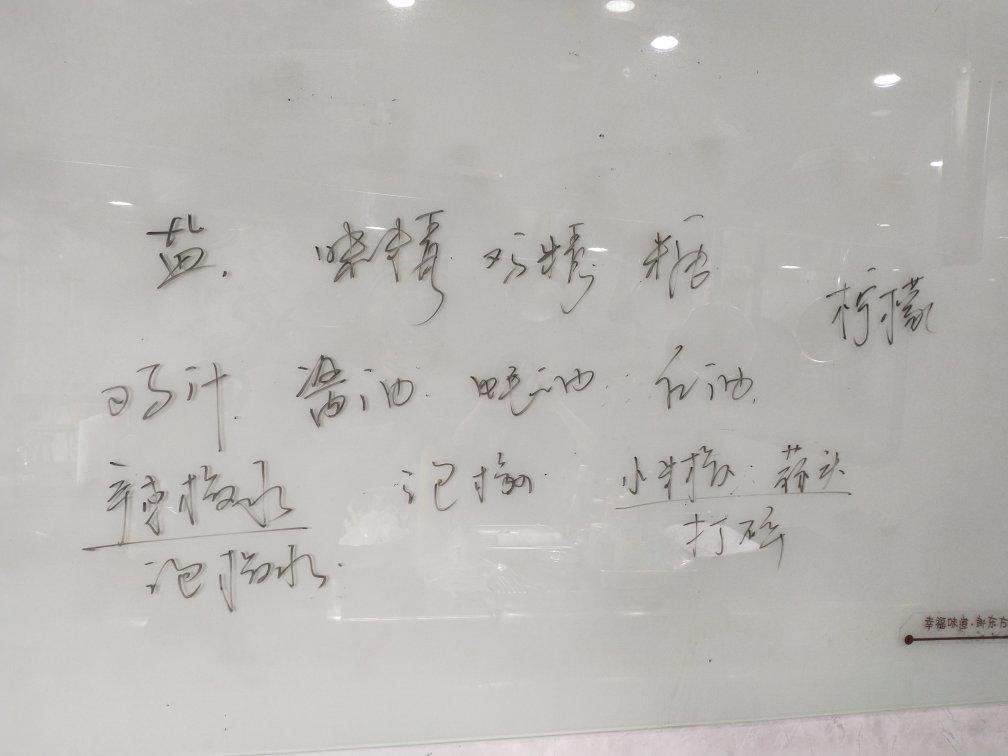 盐. 味精. 鸡精. 糖
柠檬
鸡汁 酱油. 蚝油. 红油.
辣椒水 泡椒. 小米椒. 蒜头
泡椒水. 打碎
幸福味道·新东方